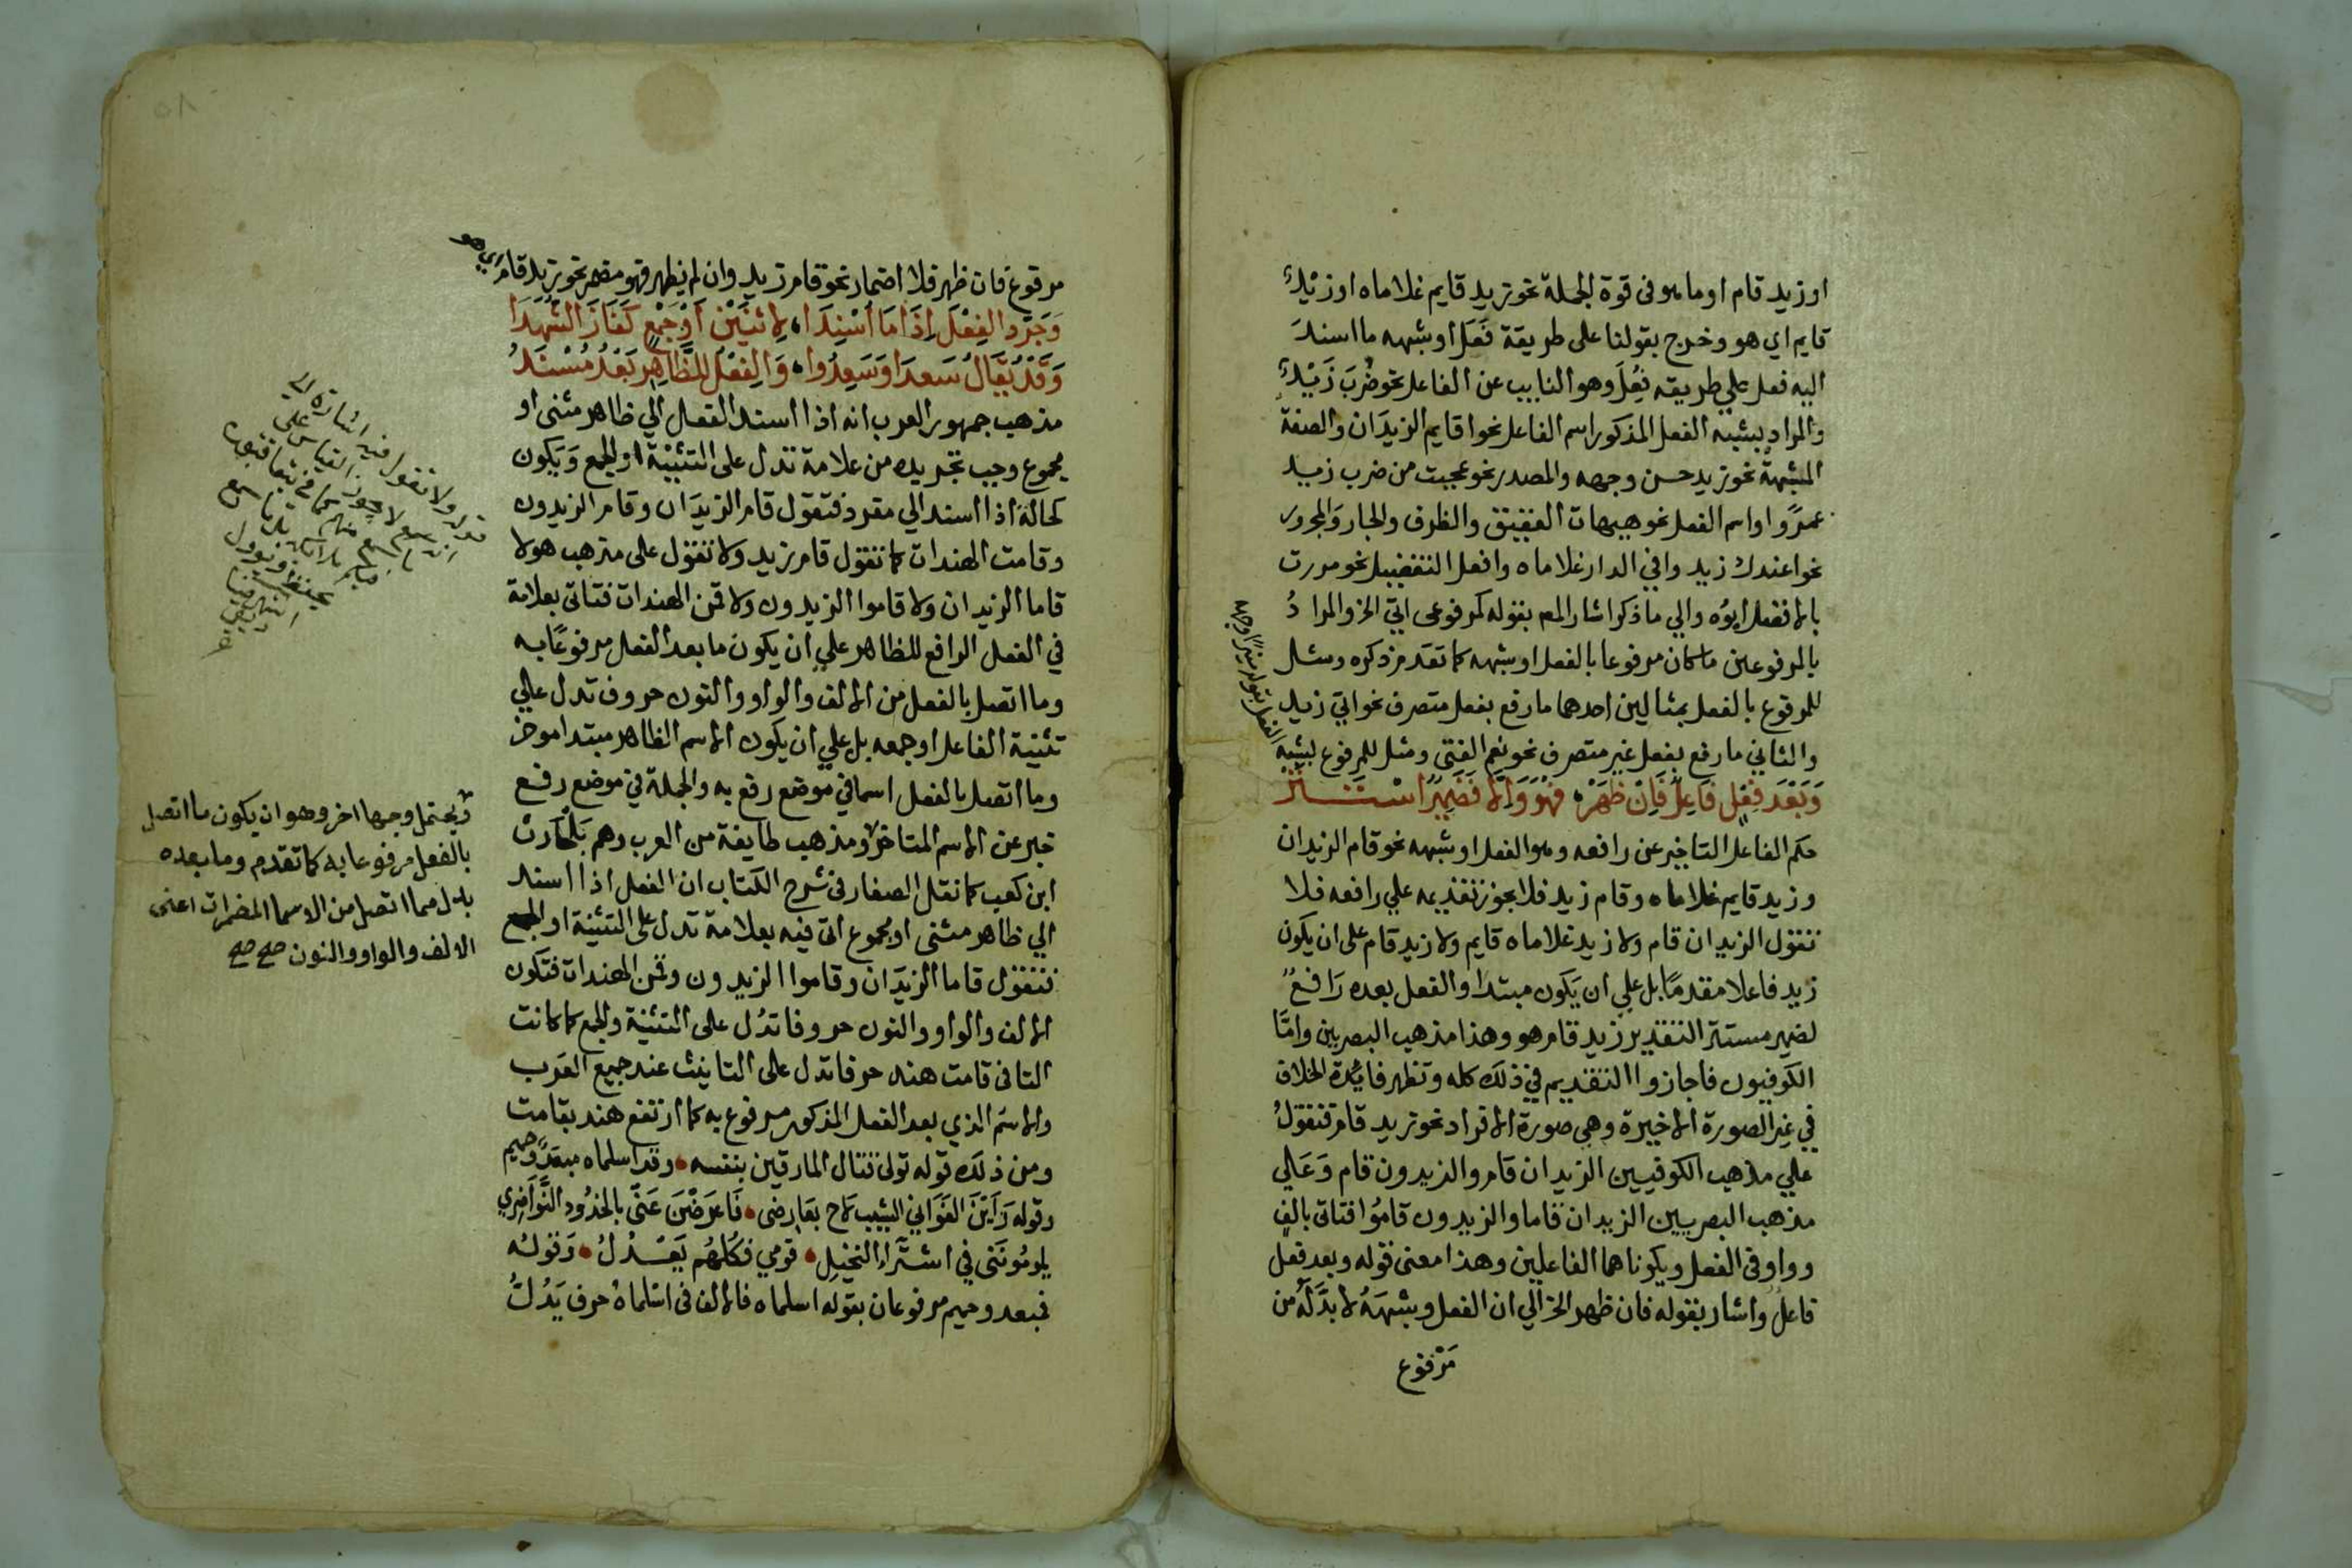 او زيد قام او ما هو في قوة الجملة نحو زيد قايم غلاماه او زيدٌ
قايم اي هو وخرج بقولنا على طريقة فَعَل او شبهه ما اسندَ
اليه فعل علي طريقه فُعِلَ وهو النايب عن الفاعل نحو ضُرِبَ زَيْدٌ
والمراد بشبه الفعل المذكور اسم الفاعل نحو اقايم الزيدَان والصفة
المشبهة نحو زيد حسن وجهه والمصدر نحو عجبت من ضرب زيد
عمرًوا واسم الفعل نحو هيهات العقيق والظرف والجار وَالمجرور
نحو اعندك زيد وافي الدار غلاماه وافعل التفضيل نحو مررت
بالافضل ابوُه والي ما ذكر اشار المص بقوله كمرفوعى اتي الخ والمرادُ
بالمرفوعين ما كان مرفوعا بالفعل او شبهه كما تقدم ذكره ومثل
للمرفوع بالفعل بمثالين احدهما ما رفع بفعل متصرف نحو اتي زيد
والثاني ما رفع بفعل غير متصرف نحو نعم الفتى ومثل للمرفوع بشبه
الفعل بقوله منيرًا وجهه
وَبَعْدَ فِعْلٍ فَاعِلٌ فَاِنْ ظَهَرْ، فَهْوَ وَاِلا فَضَمِيْرٌ اسْتَتَرْ
حكم الفاعل التاخير عن رافعه وهو الفعل او شبهه نحو قام الزيدان
وزيد قايم غلاماه وقام زيد فلا يجوز تقديمه علي رافعه فلا
تقول الزيدان قام ولا زيد غلاماه قايم ولا زيد قام على ان يكون
زيد فاعلا مقدمًا بل علي ان يَكون مبتدا والفعل بعده رَافعٌ
لضمير مستتر التقدير زيد قام هو وهذا مذهب البصريين وامَّا
الكوفيون فاجازوا التقديم في ذلك كله وتظهر فايدة الخلاف
في غير الصورة الاخيرة وهي صورة الافراد نحو زيد قام فتقولُ
علي مذهب الكوفيين الزيدان قام والزيدون قام وَعَلي
مذهب البصريين الزيدان قاما والزيدون قامُوا فتاتى بالفٍ
وواو في الفعل ويكونا هما الفاعلين وهذا معنى قوله وبعد فعل
فاعلٌ واشار بقوله فان ظهر الخ الي ان الفعل وشبهَهُ لا بدَّ لَهُ من
مَرْفوع
مرفوع فان ظهر فلا اضمار نحو قام زيد وان لم يظهر فهو مضمر نحو زيد قام اي هو
وَجَرِّدِ الفِعْلَ اِذَا مَا اُسْنِدَا، لِاثنَيْنِ اَوْ جَمْعٍ كَفَازَ الشُّهَدَا
وَقَدْ يُقَالُ سَعِدَا وَسَعِدُوا، وَالفِعْلُ لِلظَّاهِرِ بَعْدُ مُسْنَدُ
مذهب جمهور العرب انه اذا اسند الفعل الي ظاهر مثنى او
مجموع وجب تجريده من علامة تدل على التثنيَة او الجمع وَيَكون
كحاله اذا اسند الي مفرد فتقول قام الزيدَان وقام الزيدون
وقامت الهندات كما تقول قام زيد ولا تقول على مذهب هولا
قاما الزيدان ولا قاموا الزيدون ولا قمن الهندات فتاتى بعلامة
في الفعل الرافع للظاهر علي ان يكون ما بعد الفعل مرفوعًا به
وما اتصل بالفعل من الالف والواو والنون حروف تدل علي
تثنية الفاعل او جمعه بل علي ان يكون الاسم الظاهر مبتدا موخر
وما اتصل بالفعل اسما في موضع رفع به والجملة في موضع رفع
خبر عن الاسم المتاخر ومذهب طايفة من العرب وهم بَلْحارث
ابن كعب كما نقل الصفار في شرح الكتاب ان الفعل اذا اسند
الي ظاهر مثنى او مجموع اتى فيه بعلامة تدل على التثنية او الجمع
فتقول قاما الزيدَان وقاموا الزيدون وقمن الهندات فتكون
الالف والواو والنون حروفا تدُل على التثنية والجمع كما كانت
التا في قامت هند حرفا تدل على التانيث عند جميع العَرب
والاسم الذي بعد الفعل المذكور مرفوع به كما ارتفع هند بقامت
ومن ذلك قوله تولى قتال المارقين بنفسه، وقد اسلماه مبعدٌ وحميم
وقوله رَاَيْنَ الغَوَاني الشيبَ لَاح بعَارضي، فَاَعرَضْنَ عَنّي بالخدُود النَّوَاضِرِ
يلومُونَنى في اشتِرَاء النخيلِ، قومي فكُلهُم يَعْذُلُ، وَقولُه
فمبعد وحميم مرفوعان بقوله اسلماه فالالف في اسْلماهُ حرف يَدُلُّ
ويحتمل وجها اخر وهو ان يكون ما اتصل
بالفعل مرفوعا به كما تقدم وما بعده
بدل مما اتصل من الاسما المضمرات اعنى
الالف والواو والنون صح صح